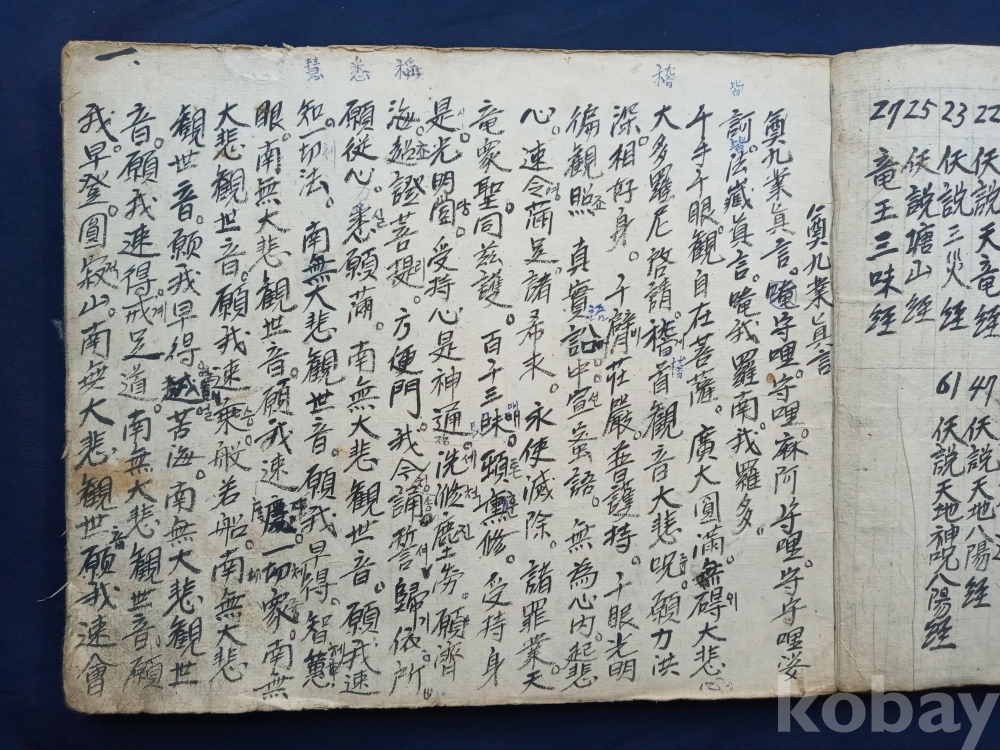 22 仸説天竜經 47 仸説天地八陽經
23 仸説三災經 61 仸説天地神呪八陽經
25 仸説塘山經
27 竜王三味經
奠九業眞言
奠九業眞言。唵守哩。守哩。麻阿守哩。守守哩娑
訶。法藏眞言。唵我羅南。我羅多。
皆
千手千眼觀自在菩薩。廣大圓滿無碍大悲心
大多羅尼啓請。稽首觀音大悲呪。願力洪
稽
深。相好身。千臂莊嚴。普護持。千眼光明
徧観照 真實語中宣蜜語。無為心内。起悲
心。速令滿足諸希求。永使滅除。諸罪業。天
竜衆聖同玆護。百千三昧。頓熏修。受持身
是。光明圏。受持心是神通。洗滌塵勞。願濟
海。超證菩提。方便門。我今誦誓歸依。所
稱
願從心。悉願滿。南無大悲観世音。願我速
悉
知一切法。南無大悲観世音。願我早得。智慧
慧
眼。南無大悲観世音。願我速度一切衆。南無
大悲観世音。願我速乘般若船。南無大悲
観世音。願我早得越苦海。南無大悲観世
音。願我速得戒足道。南無大悲観世音。願
我。早登圓寂山。南無大悲観世音願我速會
一.
kobay